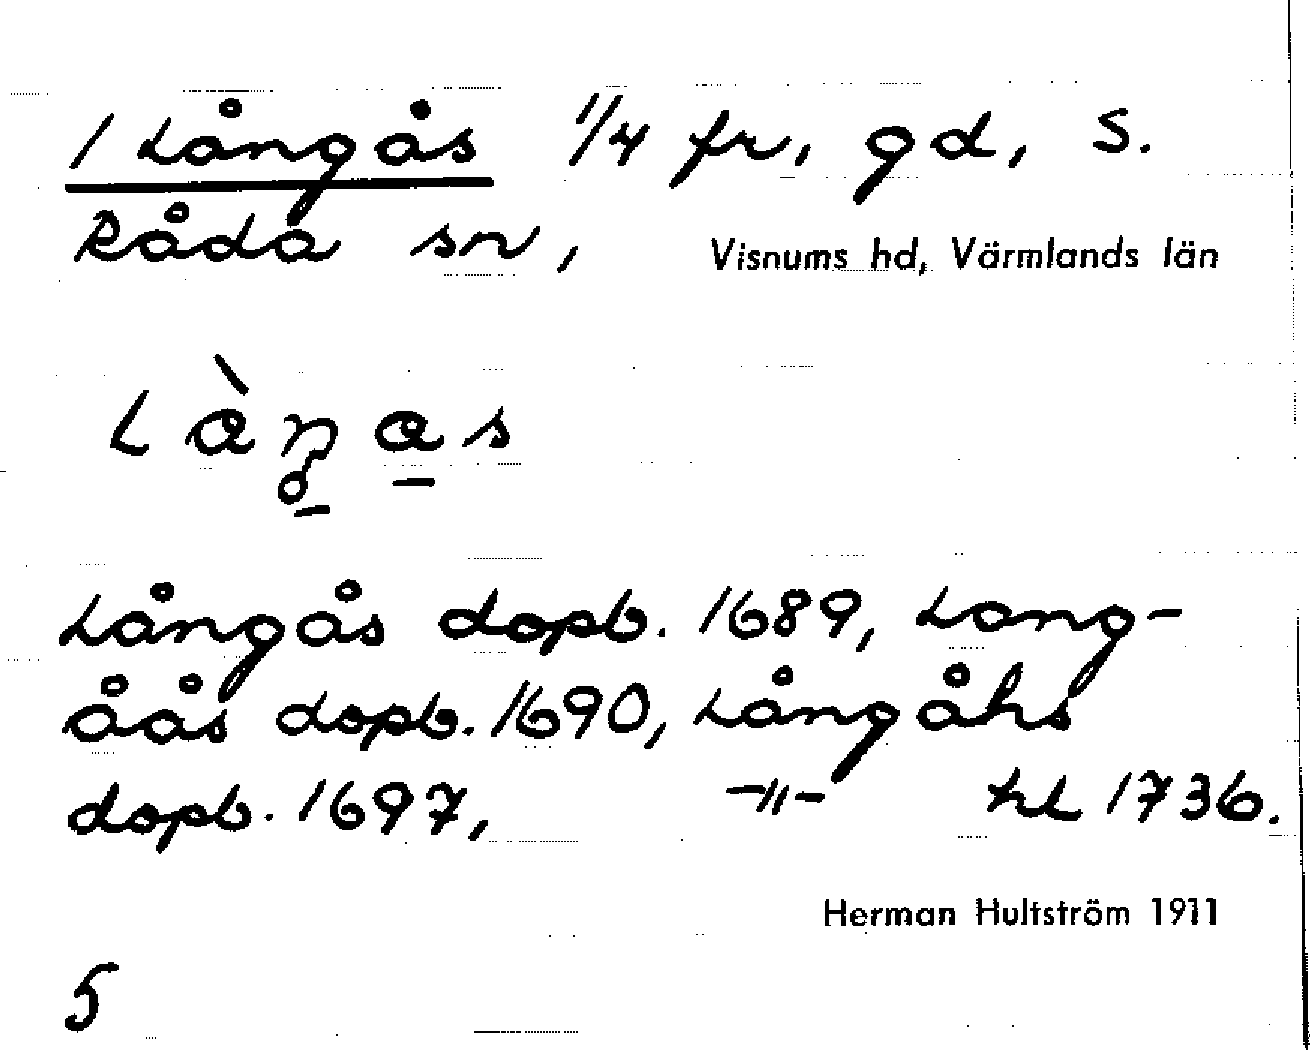 1 Långås 1/4 fr, gd, S.
Råda sn, Visnums hd, Värmlands län
Làn̥gas
Långås dopb. 1689, Lang-
åås dopb. 1690, Långåhs
dopb. 1697, -"- hl 1736.
Herman Hultström 1911
5